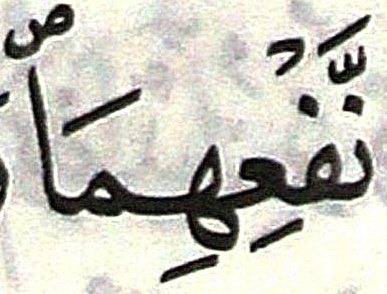 نَّفْعِهِمَاۗ